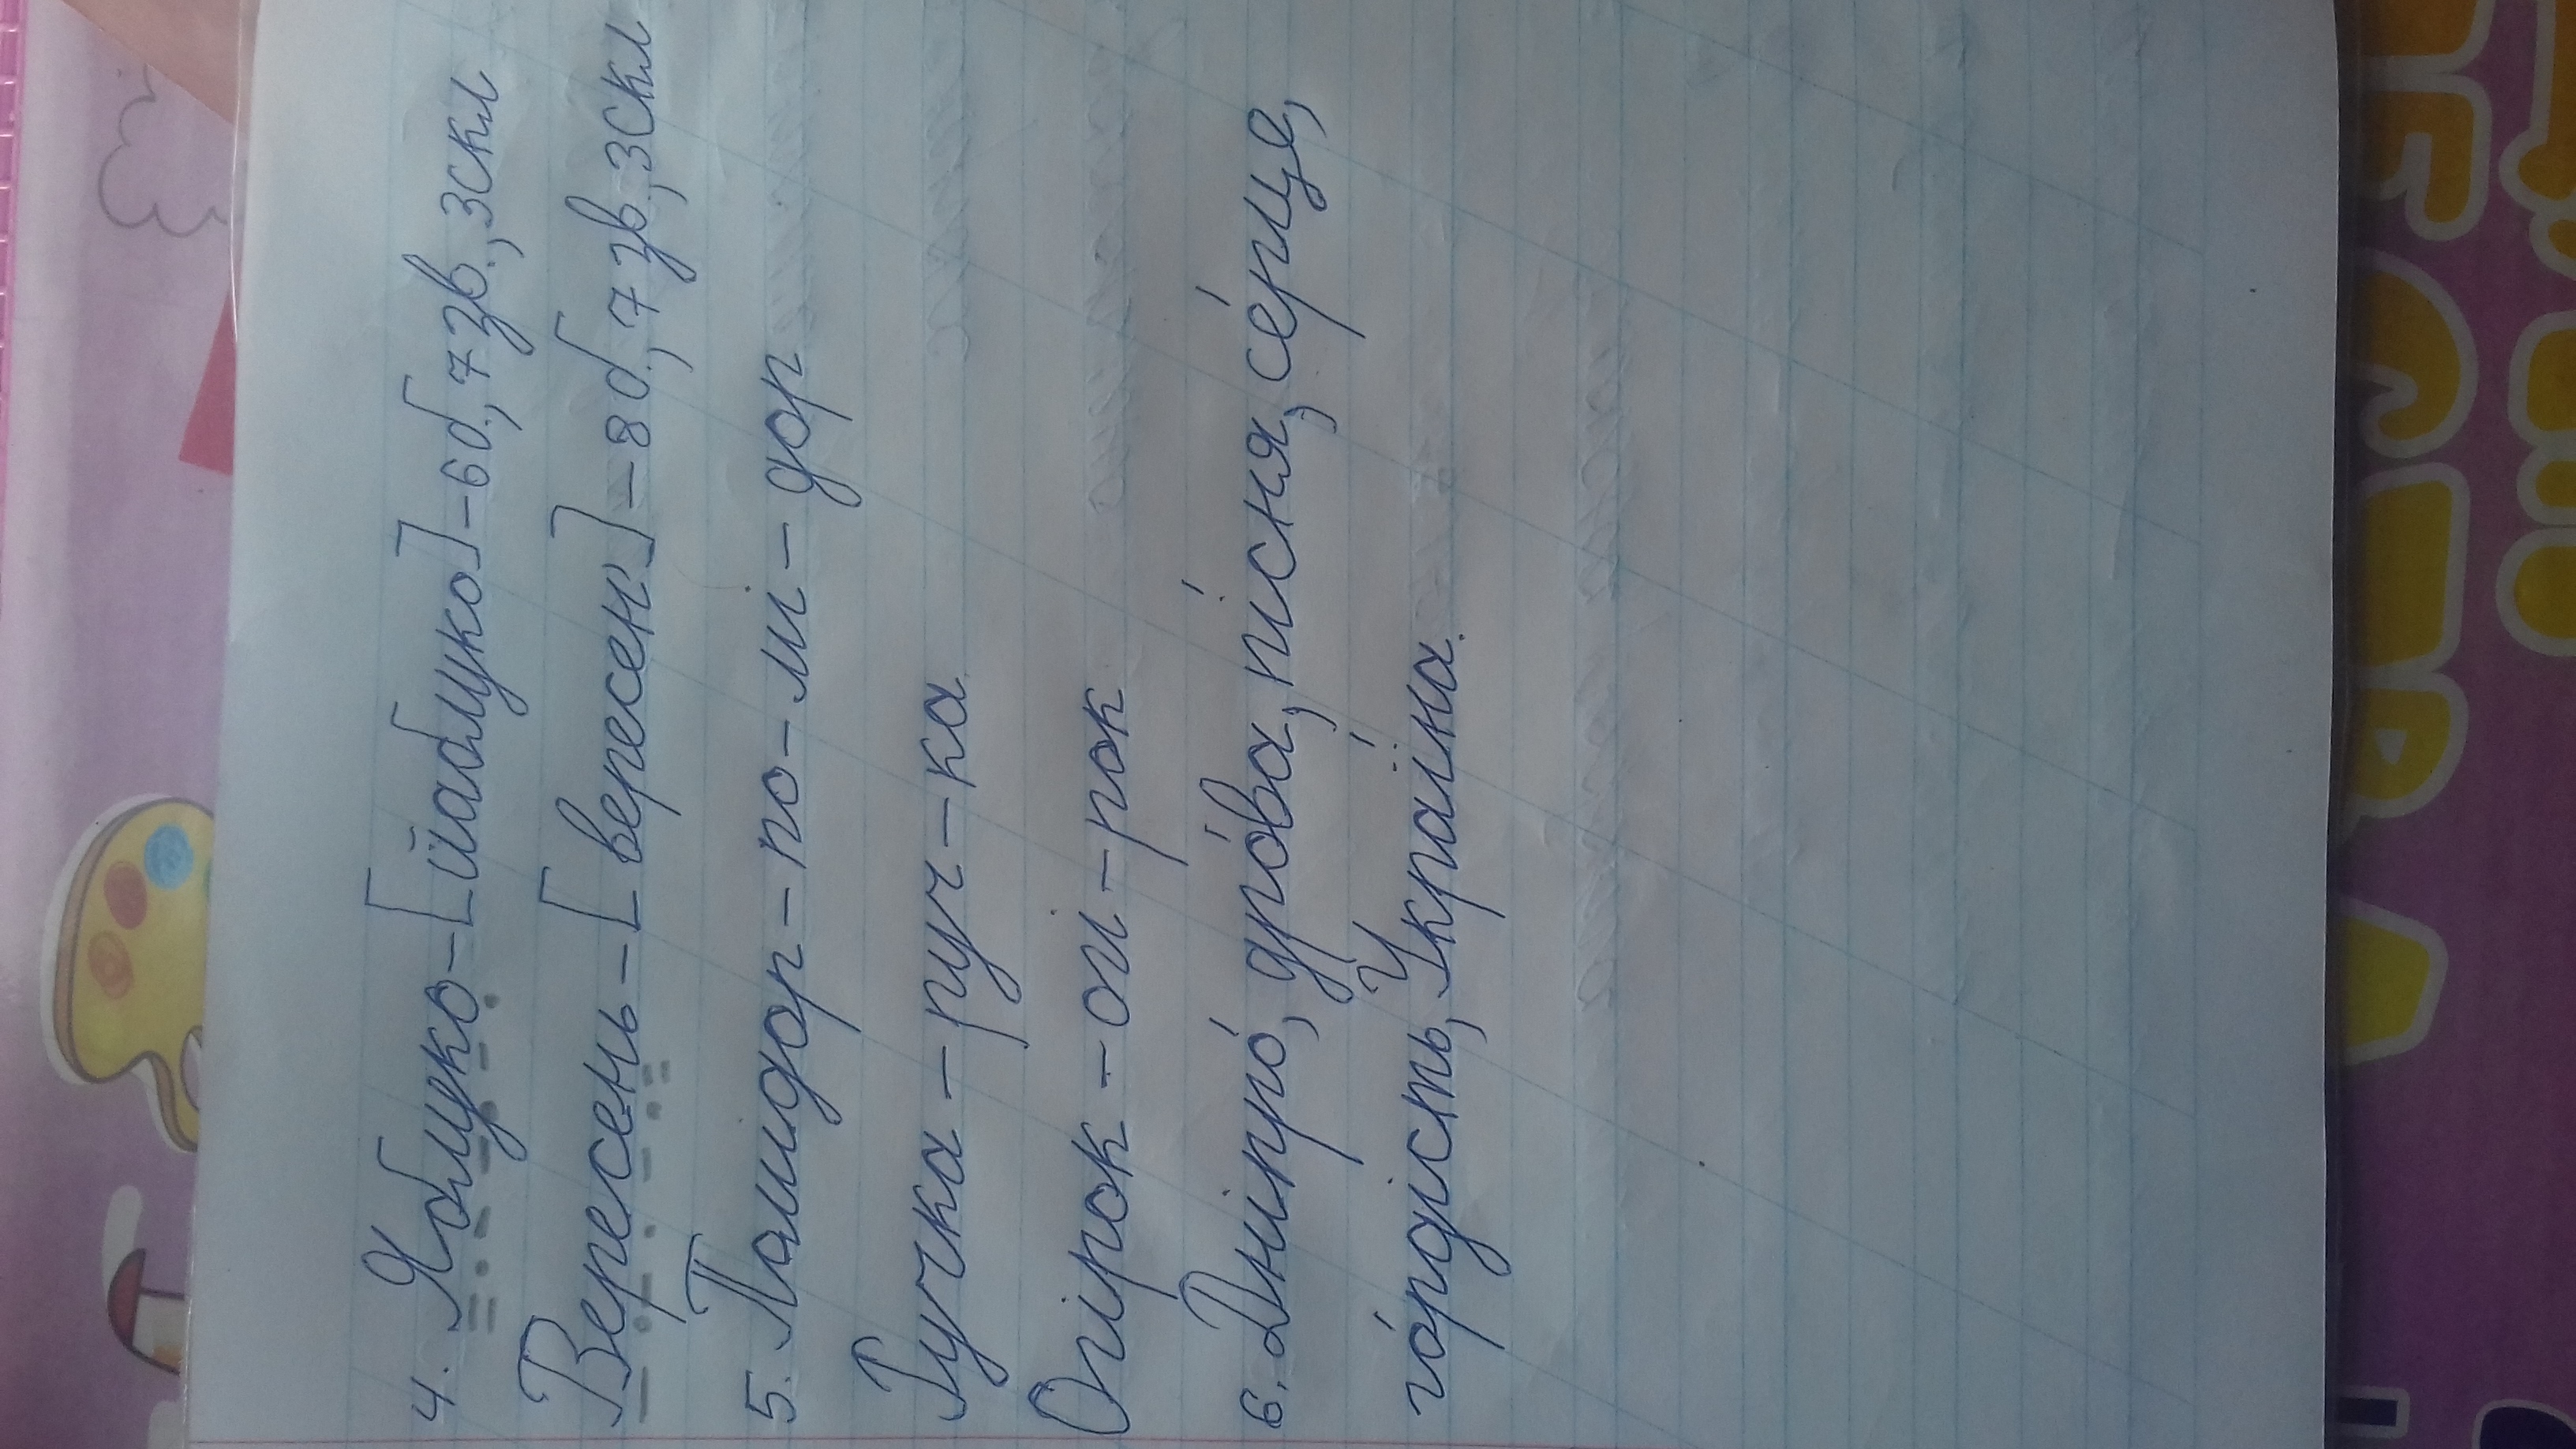 4. Яблуко - [йаблуко] - 6 б., 7 зв., 3 скл
Вересень - [вересен'] - 8 б., 7 зв., 3 скл
5. Помидор - по - мі - дор
Ручка - руч - ка
Огірок - ог - рок
6. Дніпро́, дро́ва, пі́сня, се́рце,
го́рдість, Украї́на.